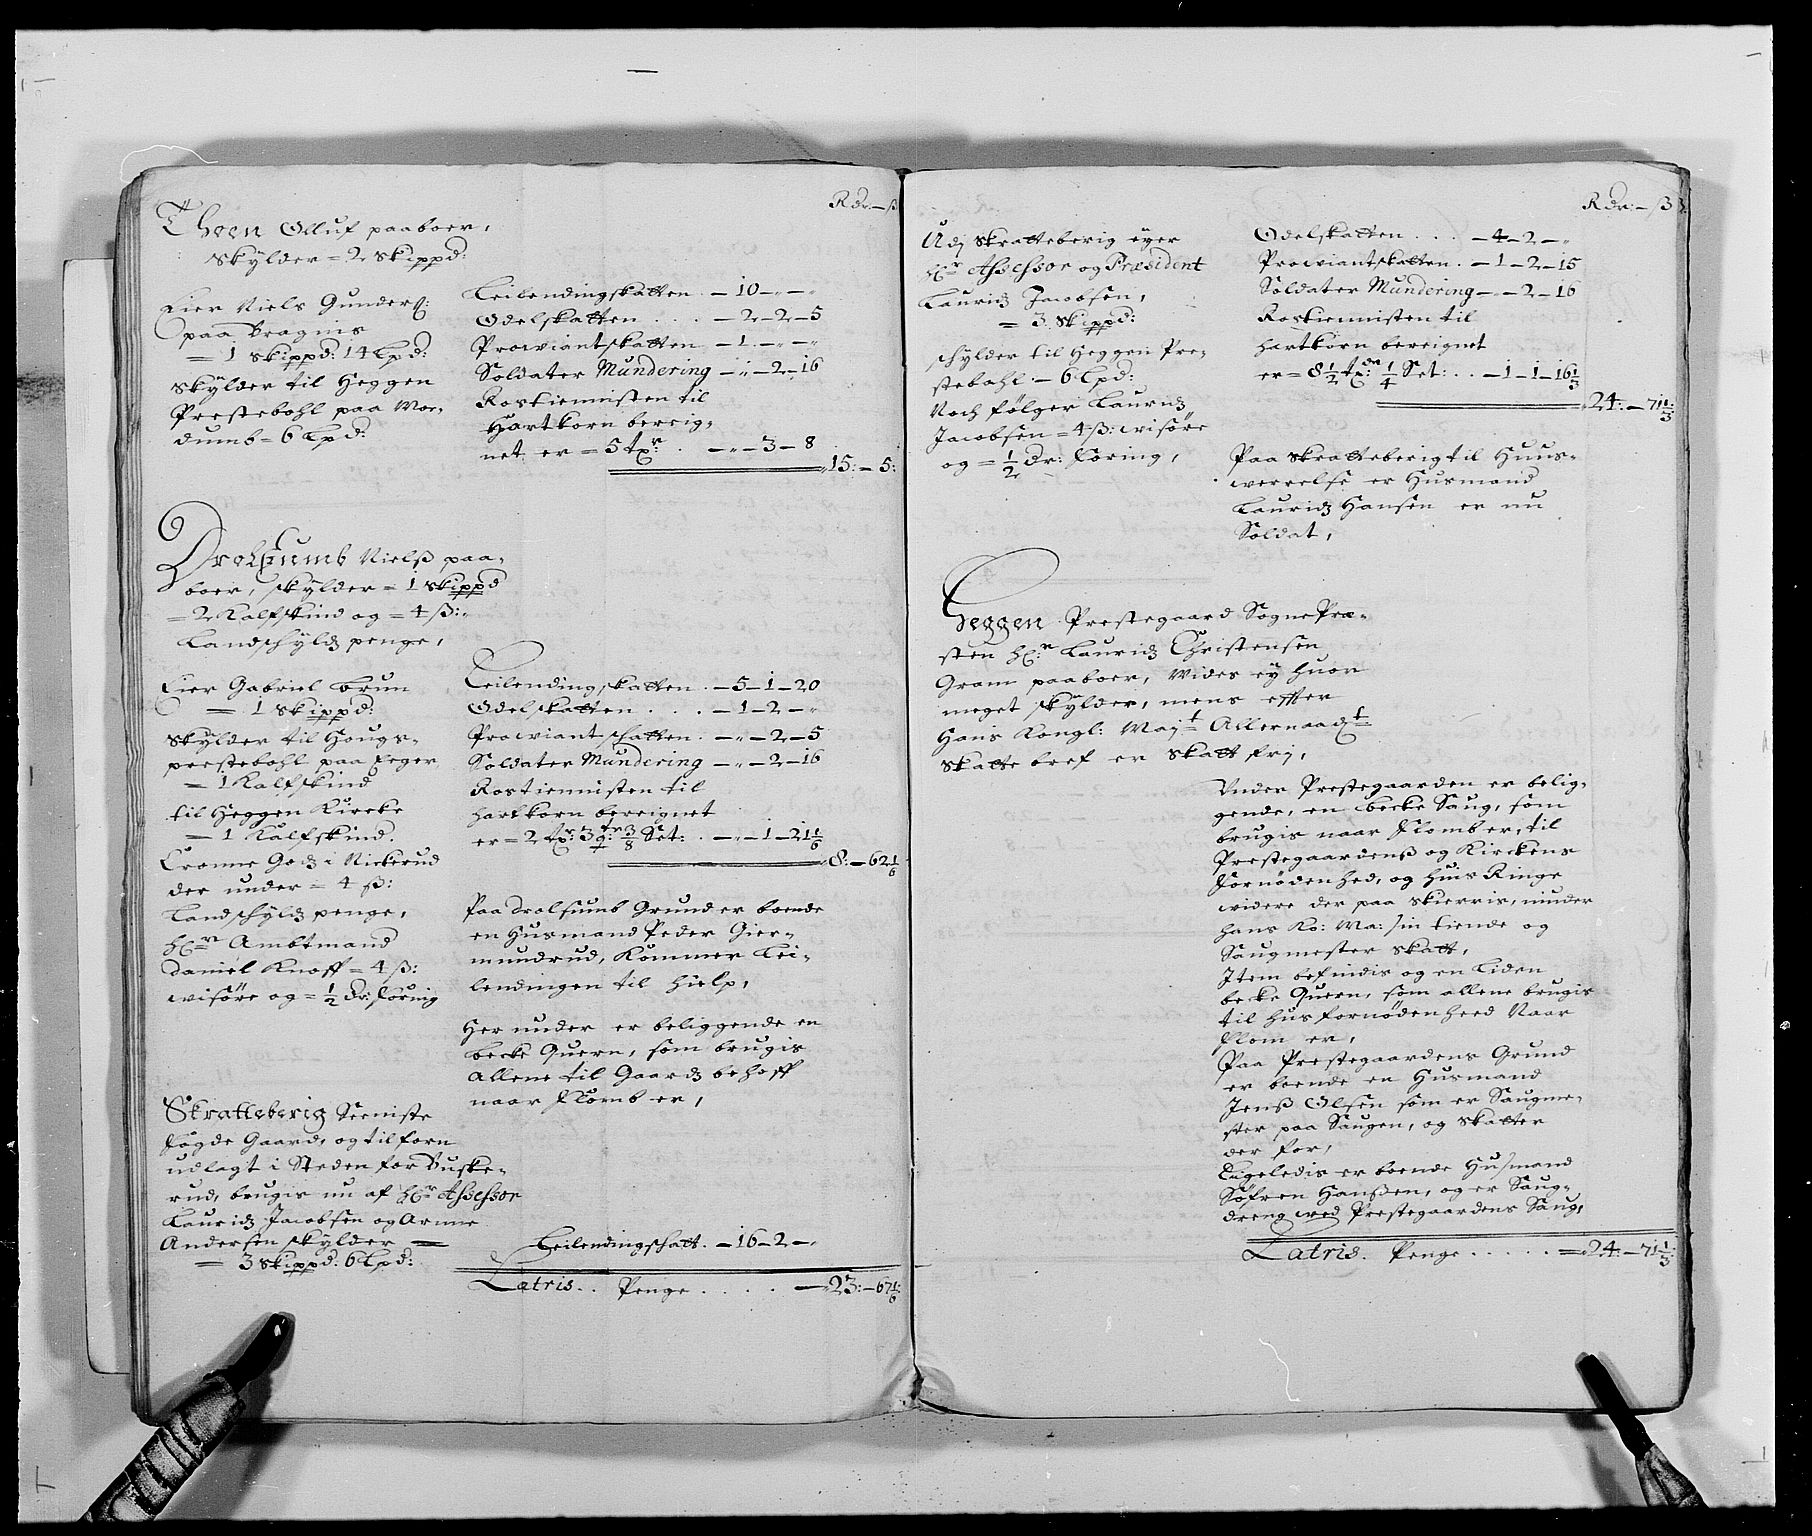 Rdr: – ß
Theen Olluf paaboer,
skylder = 2 skippd:
Eier Niels Gunders:
paa Bragnis
= 1 skippd: 14 Lpd:
skylder til Heggen
Prestebohl paa Mo-
dumb = 6 Lpd:
Leilendingskatten – 10 – „ – „
Odelskatten . . . – 2 – 2 – 5
Proviantskatten – 1 – „ – „
Soldater Mundering – „ – 2 – 16
Rostienisten til
Hartkorn bereig-
net er = 5 tr: . – „ – 3 – 8
15: – 5:
Drolsumb Nielß paa-
boer, skylder = 1 skippd
= 2 Kalfskind og = 4 ß:
Landschyldz penge,
Eier Gabriel Brun
= 1 skippd:
skylder til Hougs-
prestebohl paa Eeger
= 1 Kalfskind
til Heggen Kircke
= 1 Kalfskind.
Cronne Godz i Nickerud
der under = 4 ß:
Landschyldz penge,
hr: Ambtmand
Daniel Knoff = 4 ß:
wisøre og = 1/2 Dr: foring
Leilendingskatten . – 5 – 1 – 20
Odelskatten . . . – 1 – 2 – „
Proviantschatten . – „ – 2 – 5
Soldater Mundering – „ – 2 – 16
Rostienisten til
hartkorn bereignet
er = 2 tr: 3 3/8 Set: . – „ – 1 – 21 1/6
8: – 62 1/6
Paa Drolsumb Grund er boende
en Husmand Peder Gier-
mundrud, Kommer Lei-
lendingen til hielp,
Her under er beliggende en
becke Quern, som brugis
allene til Gaardz behoff
naar flomb er,
Skratteberig Seeniste
fogde Gaard, og til forn
udlagt i Steden for Buske-
rud, brugis nu af hr: Assessor
Lauridz Jacobsen og Arnne
Andersen skylder =
= 3 skippd: 6 Lpd:
Leilendingschatt. – 16 – 2 – „
Latris . . Penge . . . . – 23: – 67 1/6
Rdr: – ß
Udj Skratteberig eyer
hr: Assessor og Præsident
Lauridz Jacobsen,
= 3 skippd:
schylder til Heggen Pre-
stebohl – 6 Lpd:
Noch følger Lauridz
Jacobsen = 4 ß: wisøre
og = 1/2 Dr: foring,
Odelskatten . . . – 4 – 2 – „
Proviantskatten . – 1 – 2 – 15
Soldater Mundering – „ – 2 – 16
Rostienisten til
hartkorn bereignet
er = 8 1/2 tr: 1/4 Set: . . – 1 – 1 – 16 1/3
24: – 71 1/3
Paa Skratteberig til Huus-
werrelse er Husmand
Lauridz Hansen er nu
Soldat,
Heggen Prestegaard SognePræ-
sten hr: Lauridz Christensen
Gram paaboer, Wides ey huor
meget skylder, mens effter
Hans Kongl: Mayt: Allernaadt:
skatte bref er skatt frj,
Under Prestegaarden er belig-
gende, en becke Saug, som
brugis naar flomb er, til
Prestegaardenß og Kirckens
fornødenhed, og huis Ringe
widere der paa skierris, niuder
hans Ko: Ma: sin tiende og
Saugmester skatt,
Item befindis og en liden
becke Quern, som allene brugis
til hus fornødenheed Naar
flom er,
Paa Prestegaardens Grund
er boende en Husmand
Jenß Olsen som er Saugme-
ster paa Saugen, og skatter
der for,
Ligeledis er boende Husmand
Søfren Hanßen, og er Saug-
dreng wed Prestegaardens Saug,
Latris . Penge . . . . . = 24: – 71 1/3